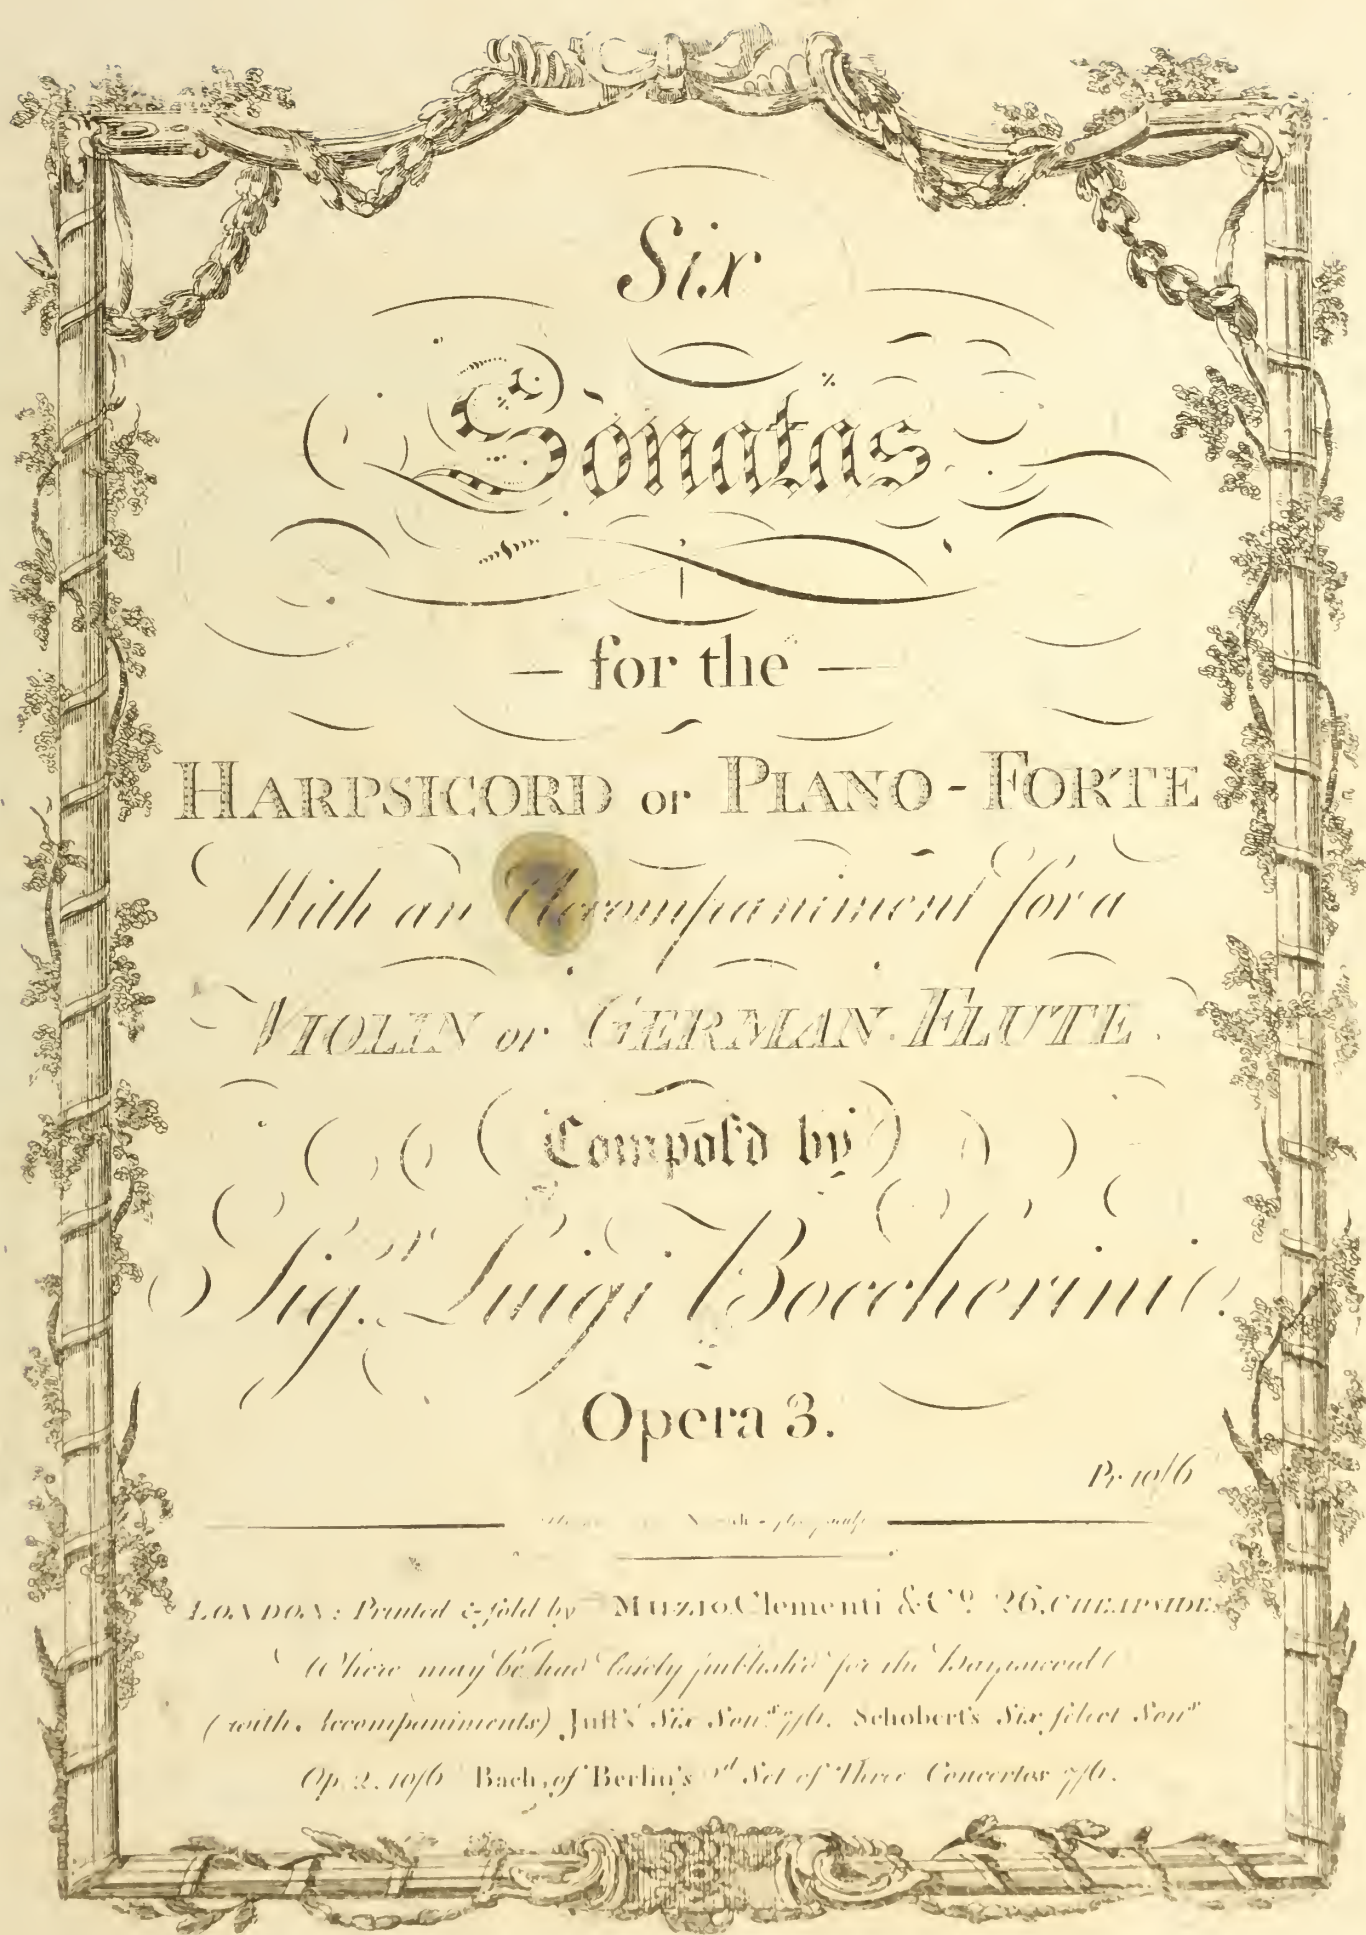 Six
Sonatas
— for the —
HARPSICORD or PIANO-FORTE
With an Accompaniment for a
VIOLIN or GERMAN FLUTE
Compos'd by
Sigr. Luigi Boccherini
Opera 3.
Pr. 10/6
LONDON: Printed & sold by MUZIO Clementi & Co. 26. CHEAPSIDE
Where may be had lately publish'd for the
(with Accompaniments) Just's Six Sons. 7/6. Schobert's Six select Sons
Op. 2. 10/6 Bach, of Berlin's 2d Set of Three Concertos 7/6.